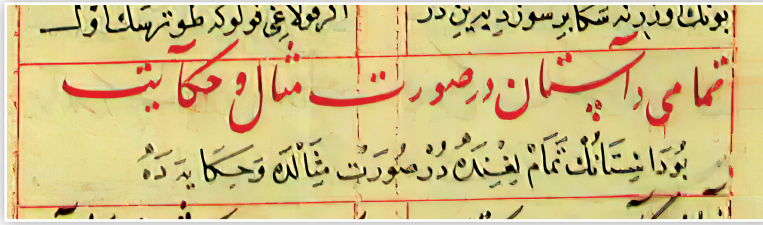 بونك اوزرنه سكا بر سوز ديدين در
اكر قولاغى قولوكه طوترسك اول
تمامى داستان در صورت مثال و حكايت
بُودَاسِتَانُكْ تَمَامْ لِغِنْدَه دُرْ صُورَتْ مِثَالْدَه وَحِكَايَه دَه